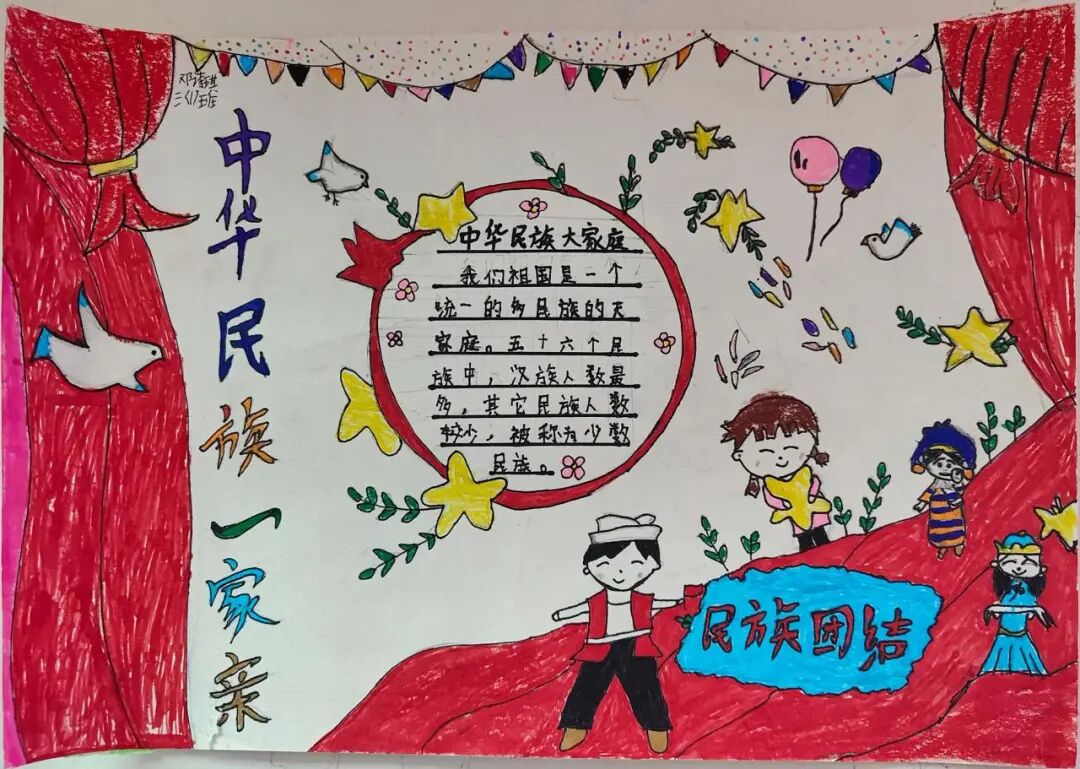 中华民族一家亲
中华民族大家庭
我们祖国是一个
统一的多民族的大
家庭。五十六个民
族中，汉族人数最
多，其它民族人数
较少，被称为少数
民族。
民族团结